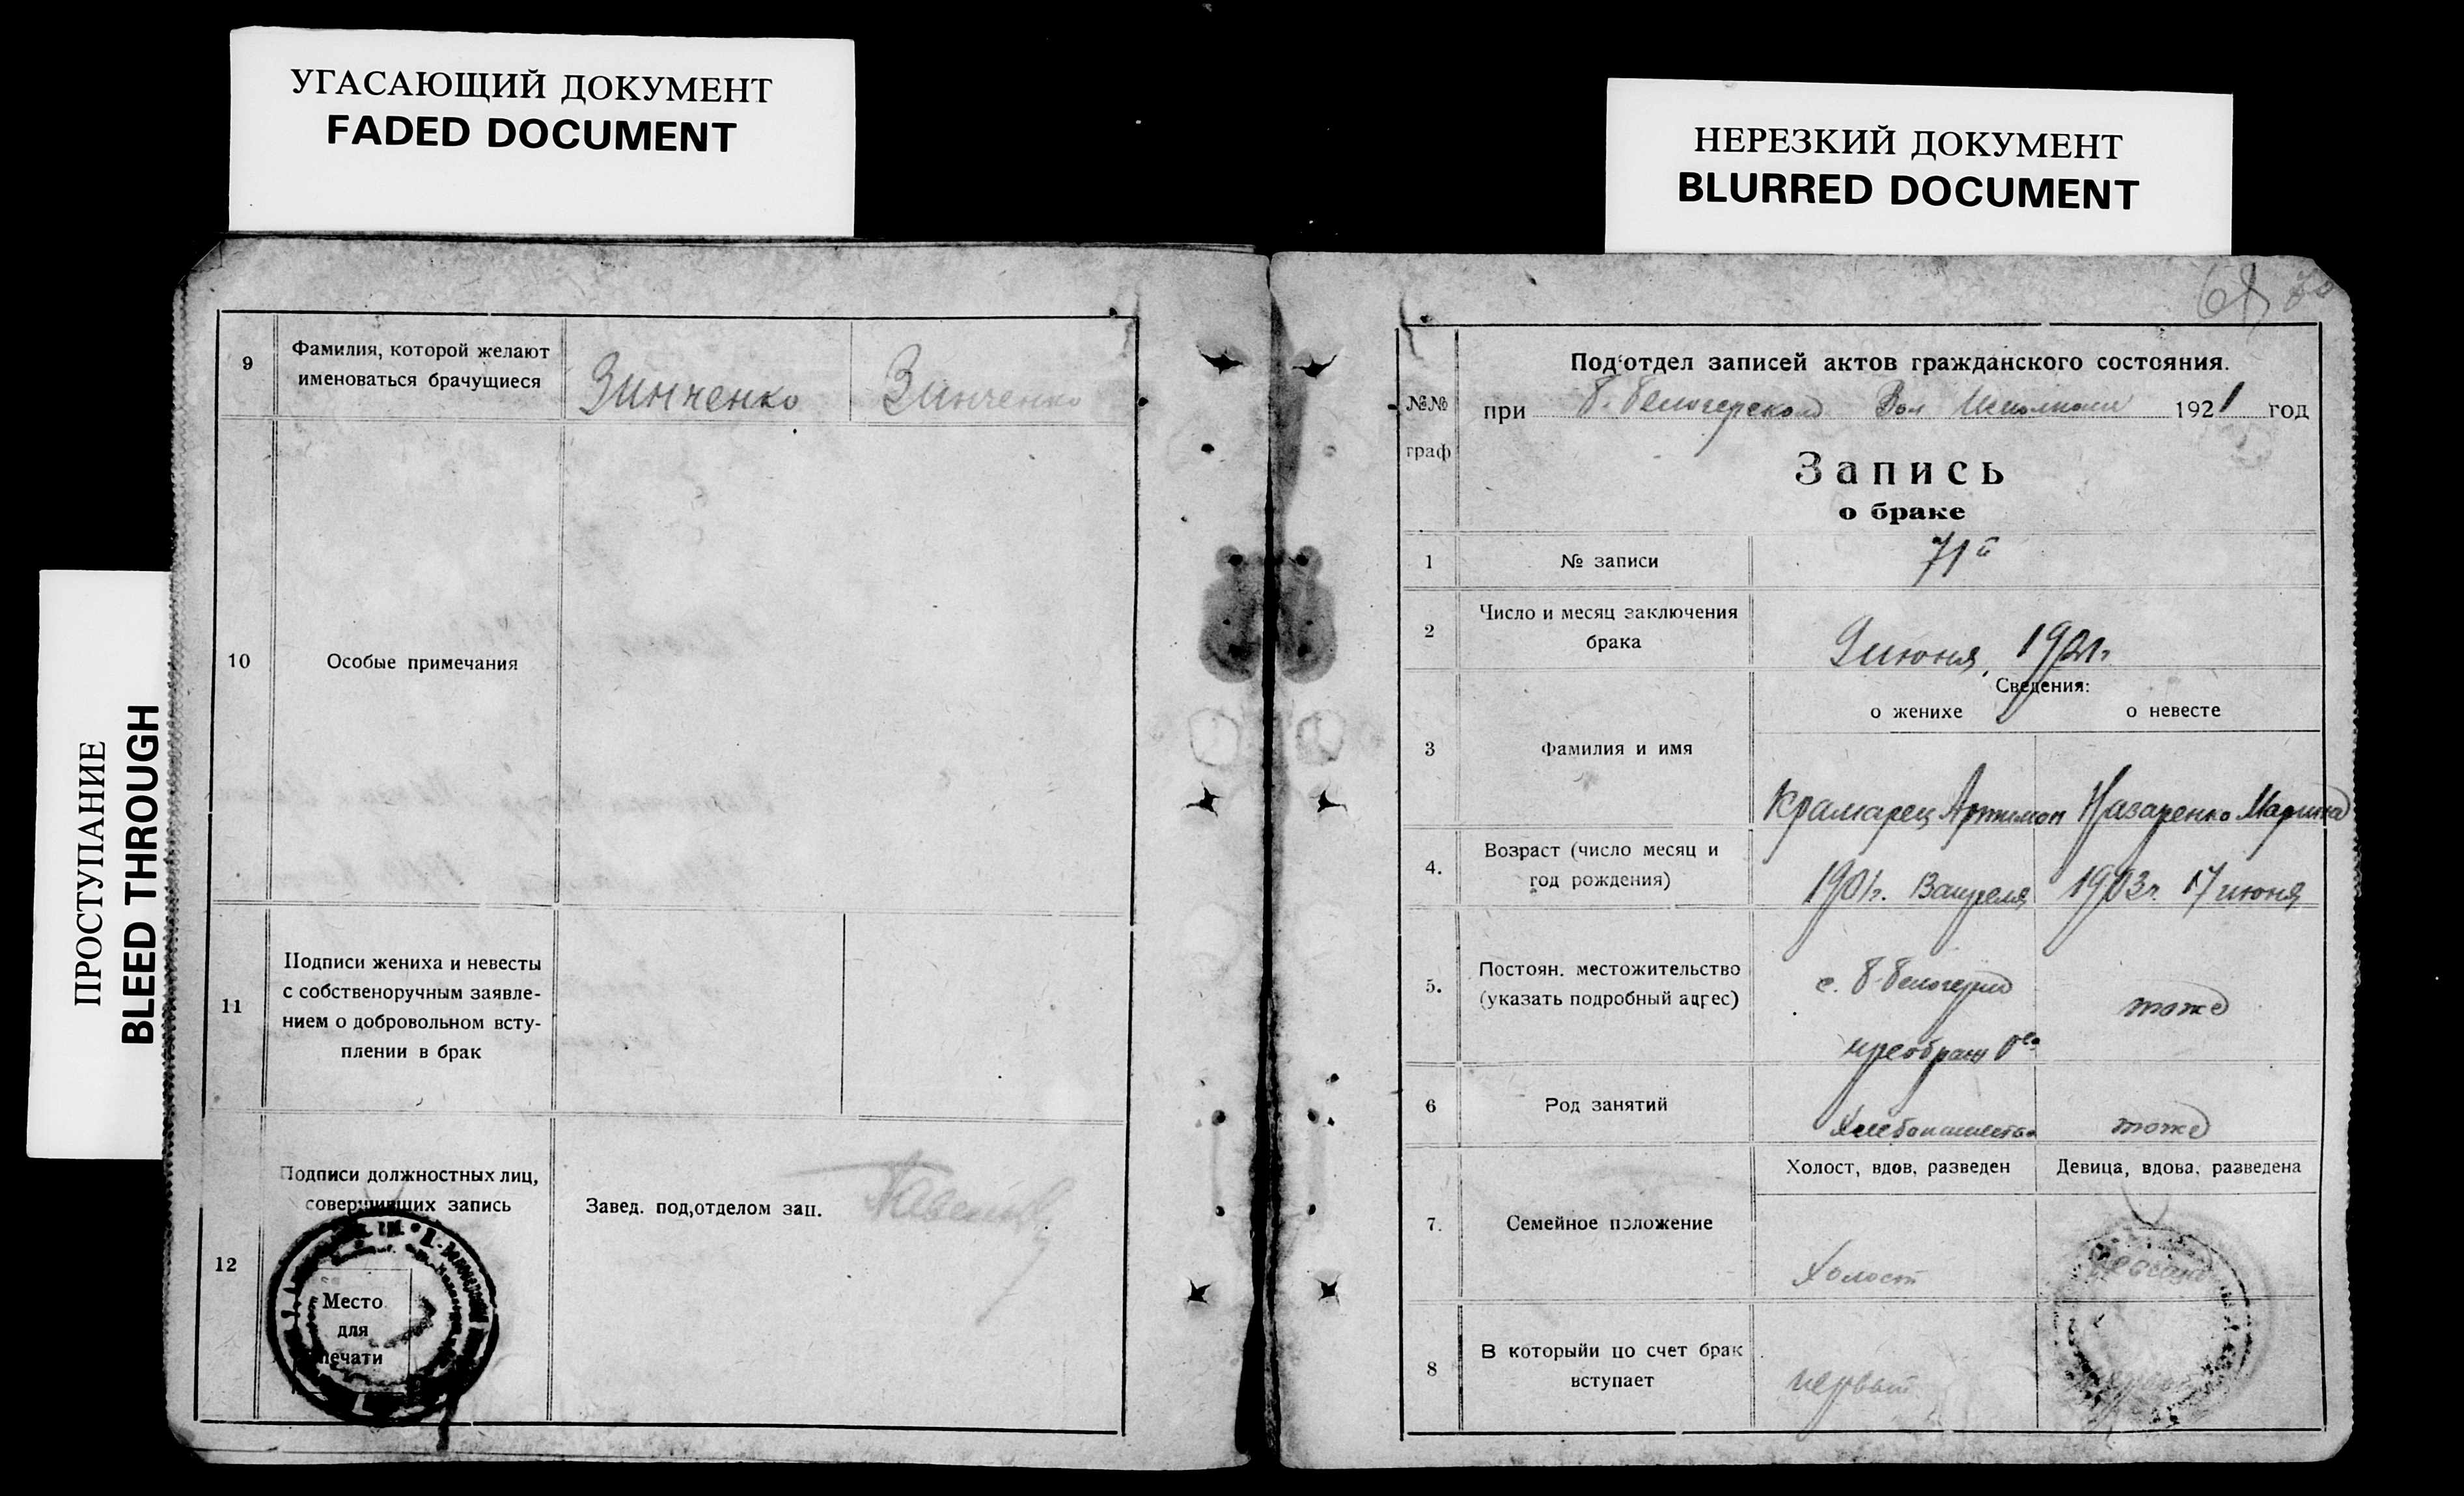 УГАСАЮЩИЙ ДОКУМЕНТ
FADED DOCUMENT
НЕРЕЗКИЙ ДОКУМЕНТ
BLURRED DOCUMENT
ПРОСТУПАНИЕ
BLEED THROUGH
9
Фамилия, которой желают
именоваться брачущиеся
Зинченко
Зинченко
10
Особые примечания
11
Подписи жениха и невесты
с собственоручным заявле-
нием о добровольном всту-
плении в брак
12
Подписи должностных лиц,
совершивших запись
Место
для
печати
Завед. под,отделом зап.
№№
граф
Под'отдел записей актов гражданского состояния.
при Б. Белозерском Вол 1921 год
Запись
о браке
1
№ записи
71й
2
Число и месяц заключения
брака
9 июня, 1921г.
Сведения:
о женихе
о невесте
3
Фамилия и имя
Крамарец Артимон
Назаренко Марина
4.
Возраст (число месяц и
год рождения)
1901г. 13 апреля
1903г. 17 июня
5.
Постоян. местожительство
(указать подробный адрес)
с. Б-Белозерка
тоже
6
Род занятий
Хлебопашество
тоже
7.
Семейное положение
Холост, вдов, разведен
Девица, вдова, разведена
Холост
девица
8
В которыйи по счет брак
вступает
первый